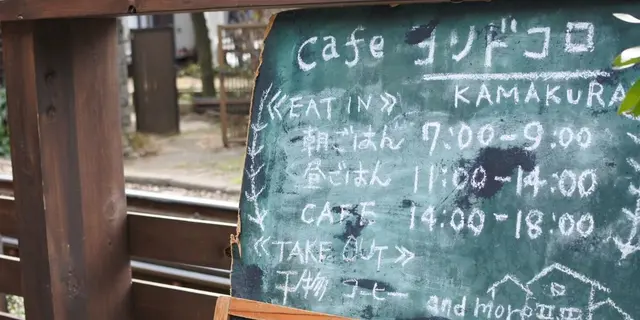 cafe ヨリドコロ
KAMAKURA
≪EAT IN≫
朝ごはん 7:00-9:00
昼ごはん 11:00-14:00
CAFE 14:00-18:00
≪TAKE OUT≫
干物 コーヒー and more